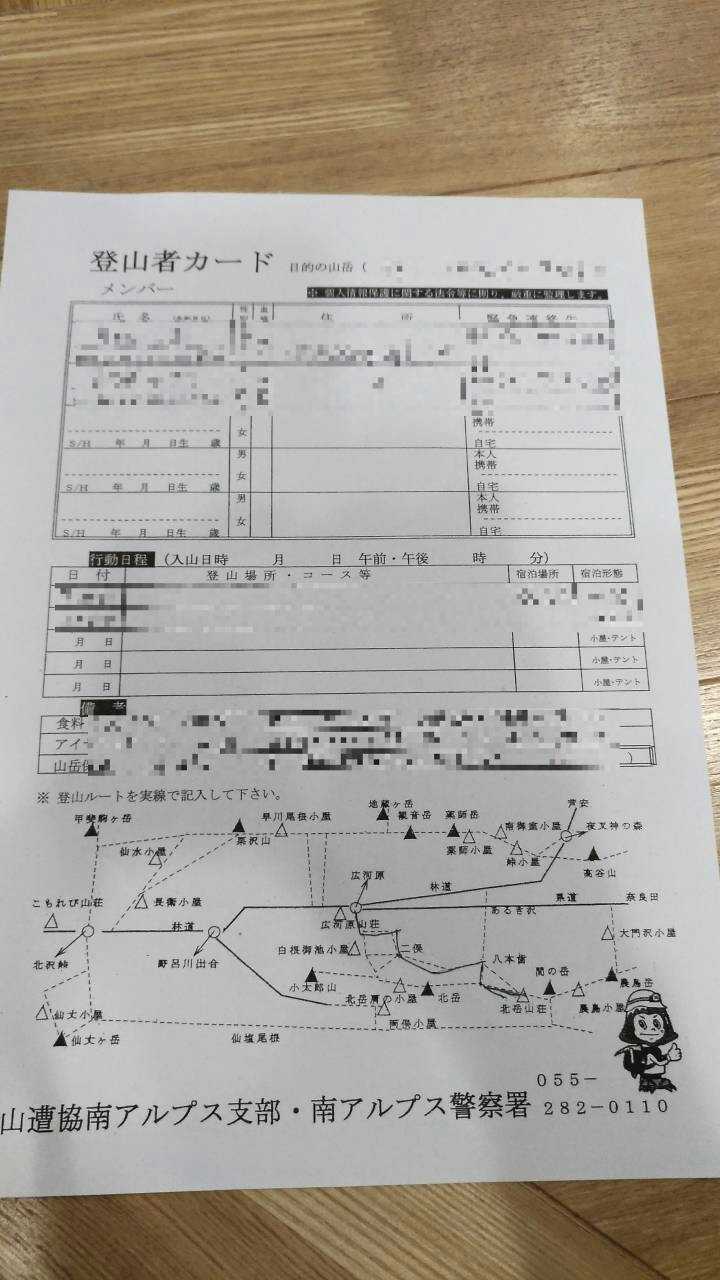 登山者カード 目的の山岳（
メンバー ※ 個人情報保護に関する法令等に則り、厳重に監理します。
氏名 住 所 緊急連絡先
女 携帯
S/H 年 月 日生 歳 自宅
男 本人
携帯
女
S/H 年 月 日生 歳 自宅
男 本人
携帯
女
S/H 年 月 日生 歳 自宅
行動日程 （入山日時 月 日 午前・午後 時 分）
日 付 登山場所・コース等 宿泊場所 宿泊形態
月 日 小屋・テント
月 日 小屋・テント
月 日 小屋・テント
備 考
食料
アイ
山岳
※ 登山ルートを実線で記入して下さい。
甲斐駒ヶ岳
仙水小屋
栗沢山
早川尾根小屋
地蔵ヶ岳
観音岳
薬師岳
薬師小屋
南御室小屋
峠小屋
芦安
夜叉神の森
高谷山
こもれび山荘
長衛小屋
林道
北沢峠
野呂川出合
広河原
広河原山荘
林道
あるき沢
県道
奈良田
大門沢小屋
白根御池小屋
二俣
八本歯
小太郎山
北岳肩の小屋
北岳
北岳山荘
間の岳
農鳥小屋
農鳥岳
両俣小屋
仙丈小屋
仙丈ヶ岳
仙塩尾根
山遭協南アルプス支部・南アルプス警察署
055-
282-0110